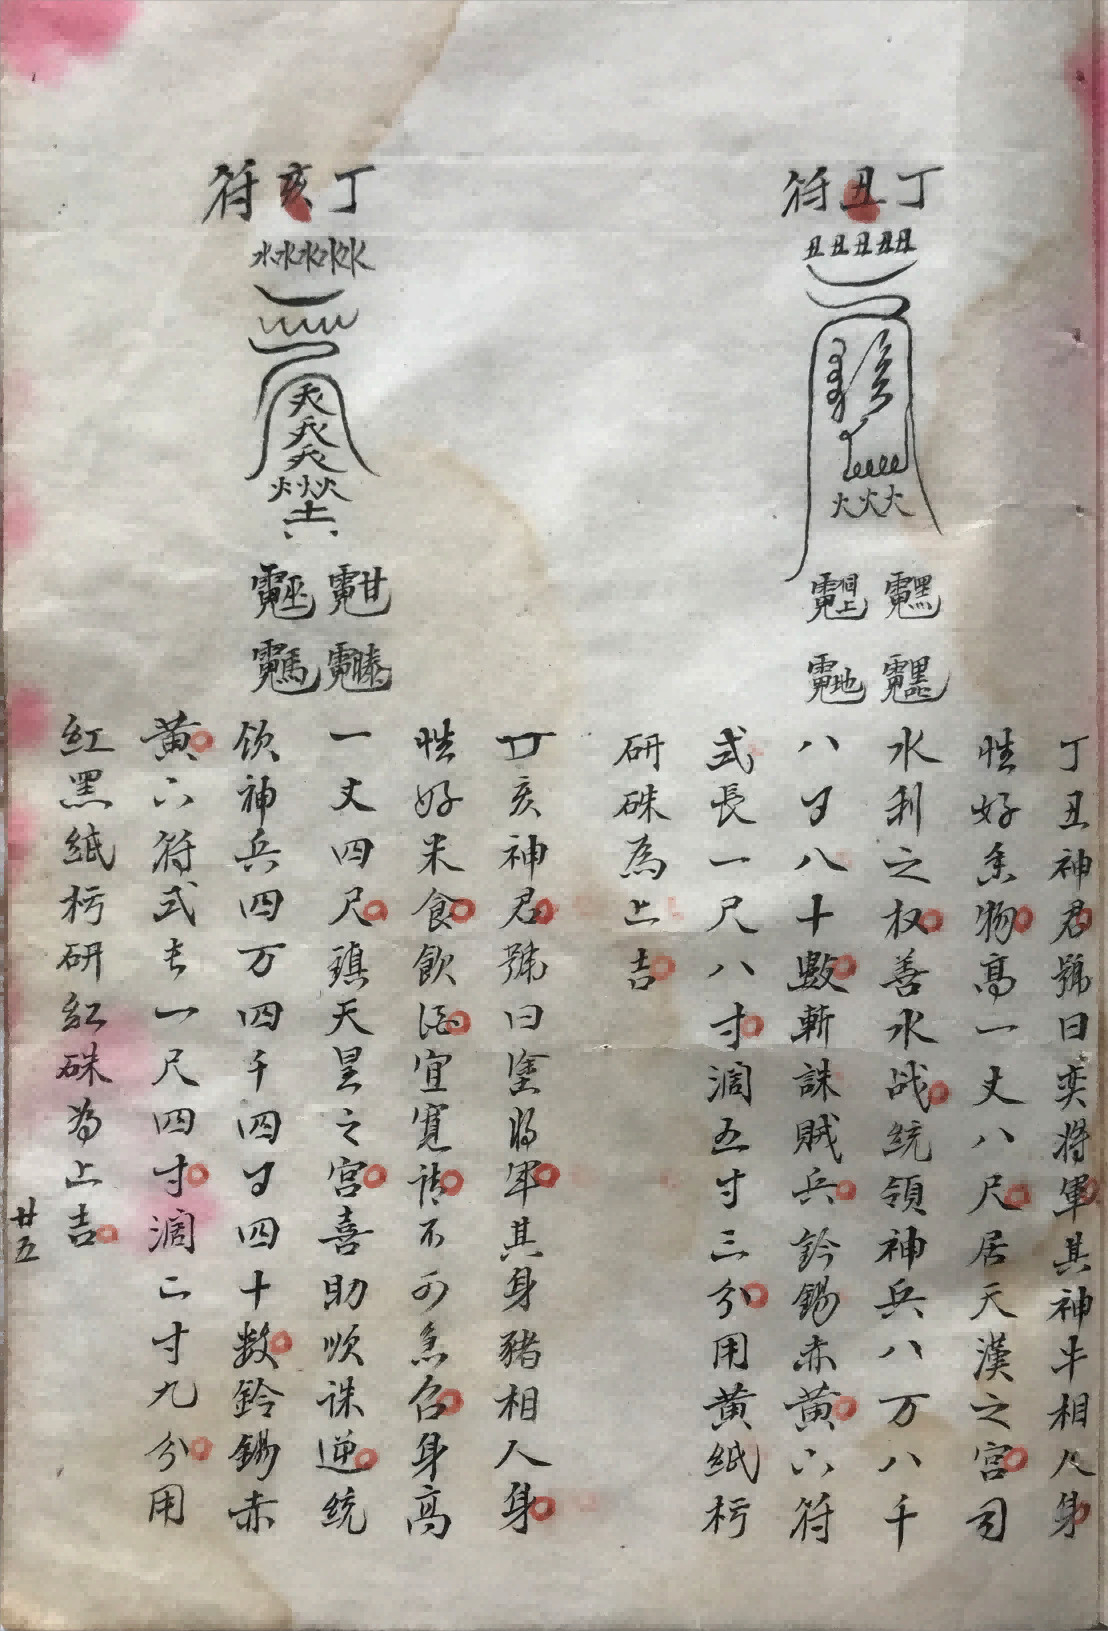 丁丑符
丑丑丑丑丑
火火火
丁丑神君號曰奕將軍其神牛相人身
性好魚物高一丈八尺居天漢之宮司
水利之权善水战統領神兵八万八千
八百八十數斬誅賊兵鈐錫赤黄六符
式長一尺八寸濶五寸三分用黄紙朽
研硃為上吉
丁亥符
水水水水水
丁亥神君號曰塗將軍其身豬相人身
性好米食飲酒宜寬請不可急召身高
一丈四尺鎮天昱之宮喜助順誅逆統
领神兵四万四千四百四十数鈴錫赤
黄六符式長一尺四寸濶二寸九分用
紅黑紙朽研紅硃為上吉
廿五